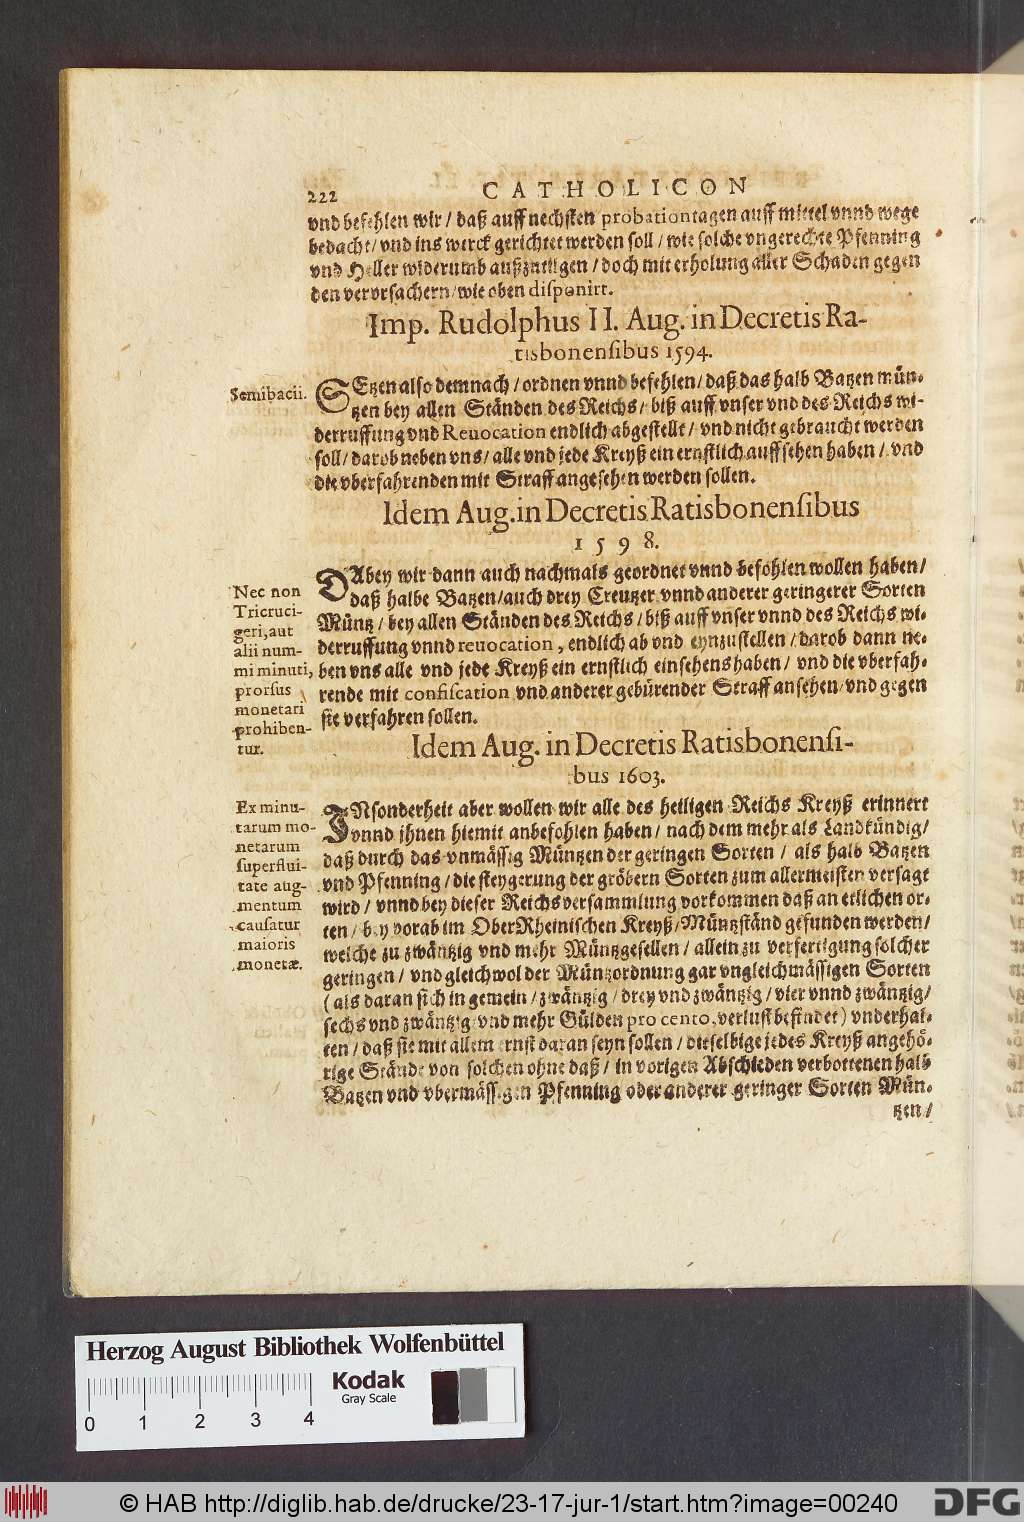 222 CATHOLICON
vnd befehlen wir / daß auff nechsten probationtagen auff mittel vnnd wege
bedacht / vnd ins werck gerichtet werden soll / wie solche vngerechte Pfenning
vnd Heller widerumb außzutilgen / doch mit erholung aller Schaden gegen
den verursachern / wie oben disponirt.
Imp. Rudolphus II. Aug. in Decretis Ra-
tisbonensibus 1594.
Semibacii.
SEtzen also demnach / ordnen vnnd befehlen / daß das halb Batzen mün-
tzen bey allen Ständen des Reichs / biß auff vnser vnd des Reichs wi-
derruffung vnd Reuocation endlich abgestellt / vnd nicht gebraucht werden
soll / darob neben vns / alle vnd jede Kreyß ein ernstlich auffsehen haben / vnd
die vberfahrenden mit Straff angesehen werden sollen.
Idem Aug. in Decretis Ratisbonensibus
1598.
Nec non
Tricruci-
geri, aut
alii num-
mi minuti,
prorsus
monetari
prohiben-
tur.
DAbey wir dann auch nachmals geordnet vnnd befohlen wollen haben /
daß halbe Batzen / auch drey Creutzer vnnd anderer geringerer Sorten
Müntz / bey allen Ständen des Reichs / biß auff vnser vnnd des Reichs wi-
derruffung vnnd reuocation, endlich ab vnd eynzustellen / darob dann ne-
ben vns alle vnd jede Kreyß ein ernstlich einsehens haben / vnd die vberfah-
rende mit confiscation vnd anderer gebürender Straff ansehen / vnd gegen
sie verfahren sollen.
Idem Aug. in Decretis Ratisbonensi-
bus 1603.
Ex minu-
tarum mo-
netarum
superflui-
tate aug-
mentum
causatur
maioris
monetæ.
INsonderheit aber wollen wir alle des heiligen Reichs Kreyß erinnert
vnnd jhnen hiemit anbefohlen haben / nach dem mehr als Landkündig /
daß durch das vnmässig Müntzen der geringen Sorten / als halb Batzen
vnd Pfenning / die steygerung der gröbern Sorten zum allermeisten versagt
wird / vnnd bey dieser Reichsversammlung vorkommen daß an etlichen or-
ten / bevorab im OberRheinischen Kreyß / Müntzständ gefunden werden /
welche zu zwäntzig vnd mehr Müntzgesellen / allein zu verfertigung solcher
geringen / vnd gleichwol der Müntzordnung gar vngleichmässigen Sorten
(als daran sich in gemein / zwäntzig / drey vnd zwäntzig / vier vnnd zwäntzig /
sechs vnd zwäntzig vnd mehr Gülden pro cento, verlust befindet) vnderhal-
ten / daß sie mit allem ernst daran seyn sollen / dieselbige jedes Kreyß angehö-
rige Stände von solchen ohne daß / in vorigen Abschieden verbottenen halb
Batzen vnd vbermässigen Pfenning oder anderer geringer Sorten Mün-
tzen /
Herzog August Bibliothek Wolfenbüttel
Kodak
Gray Scale
0 1 2 3 4
© HAB http://diglib.hab.de/drucke/23-17-jur-1/start.htm?image=00240
DFG